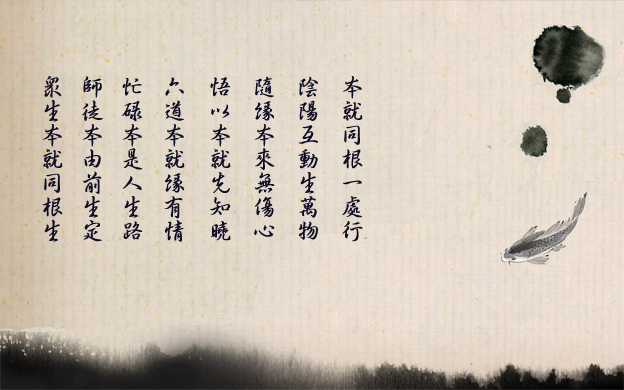 本就同根一處行
陰陽互動生萬物
隨緣本來無傷心
悟以本就先知曉
六道本就緣有情
忙碌本是人生路
師徒本由前生定
眾生本就同根生